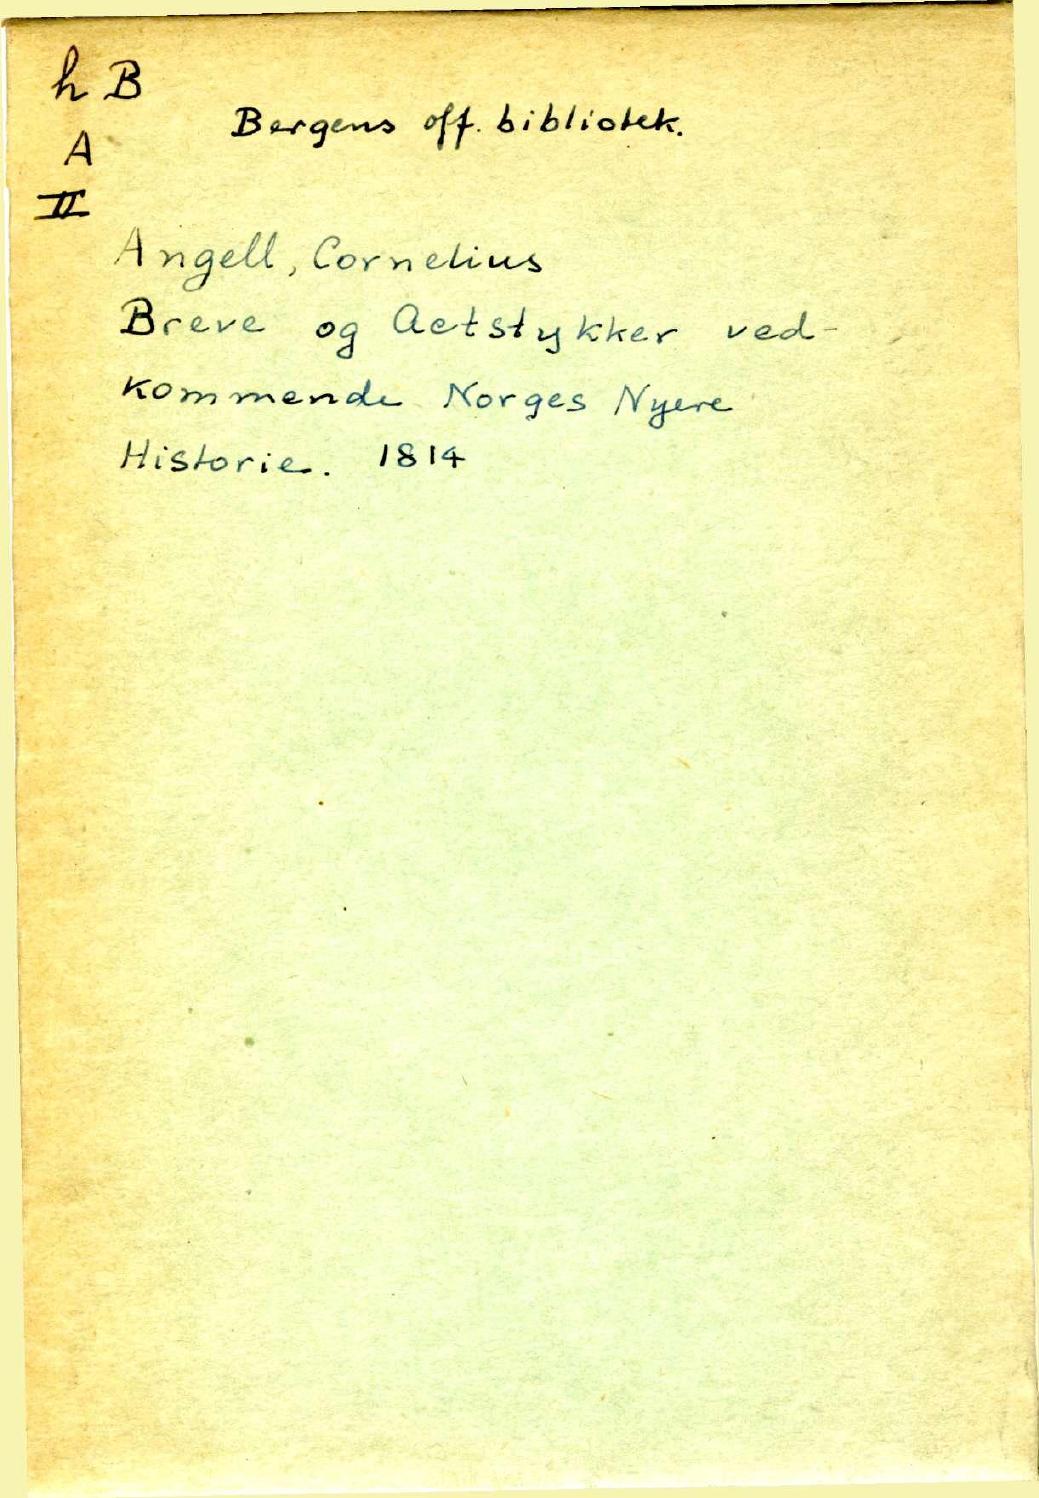 h B
Bergens off. bibliotek.
A
II
Angell, Cornelius
Breve og Actstykker ved-
kommende Norges Nyere
Historie. 1814